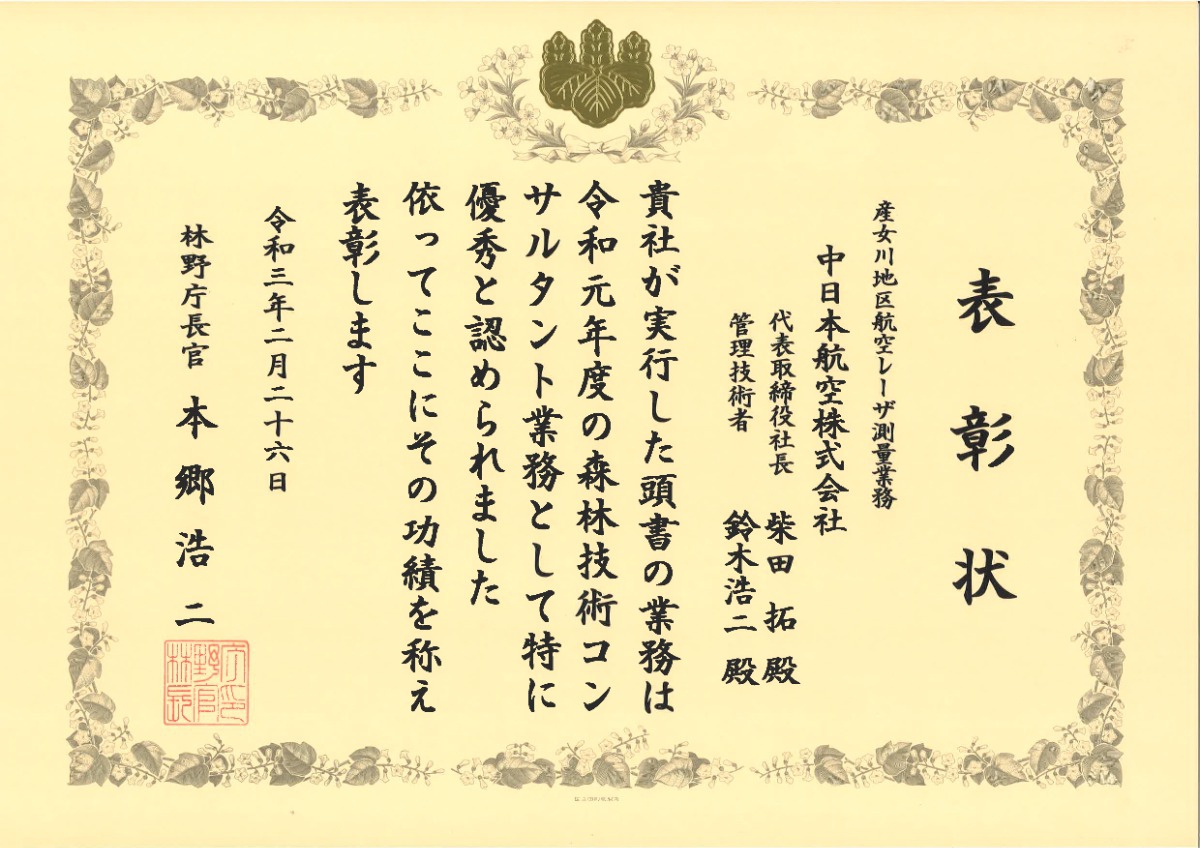 表彰状
産女川地区航空レーザ測量業務
中日本航空株式会社
代表取締役社長 柴田 拓 殿
管理技術者 鈴木浩二 殿
貴社が実行した頭書の業務は
令和元年度の森林技術コン
サルタント業務として特に
優秀と認められました
依ってここにその功績を称え
表彰します
令和三年二月二十六日
林野庁長官 本郷浩二
林野庁長官印